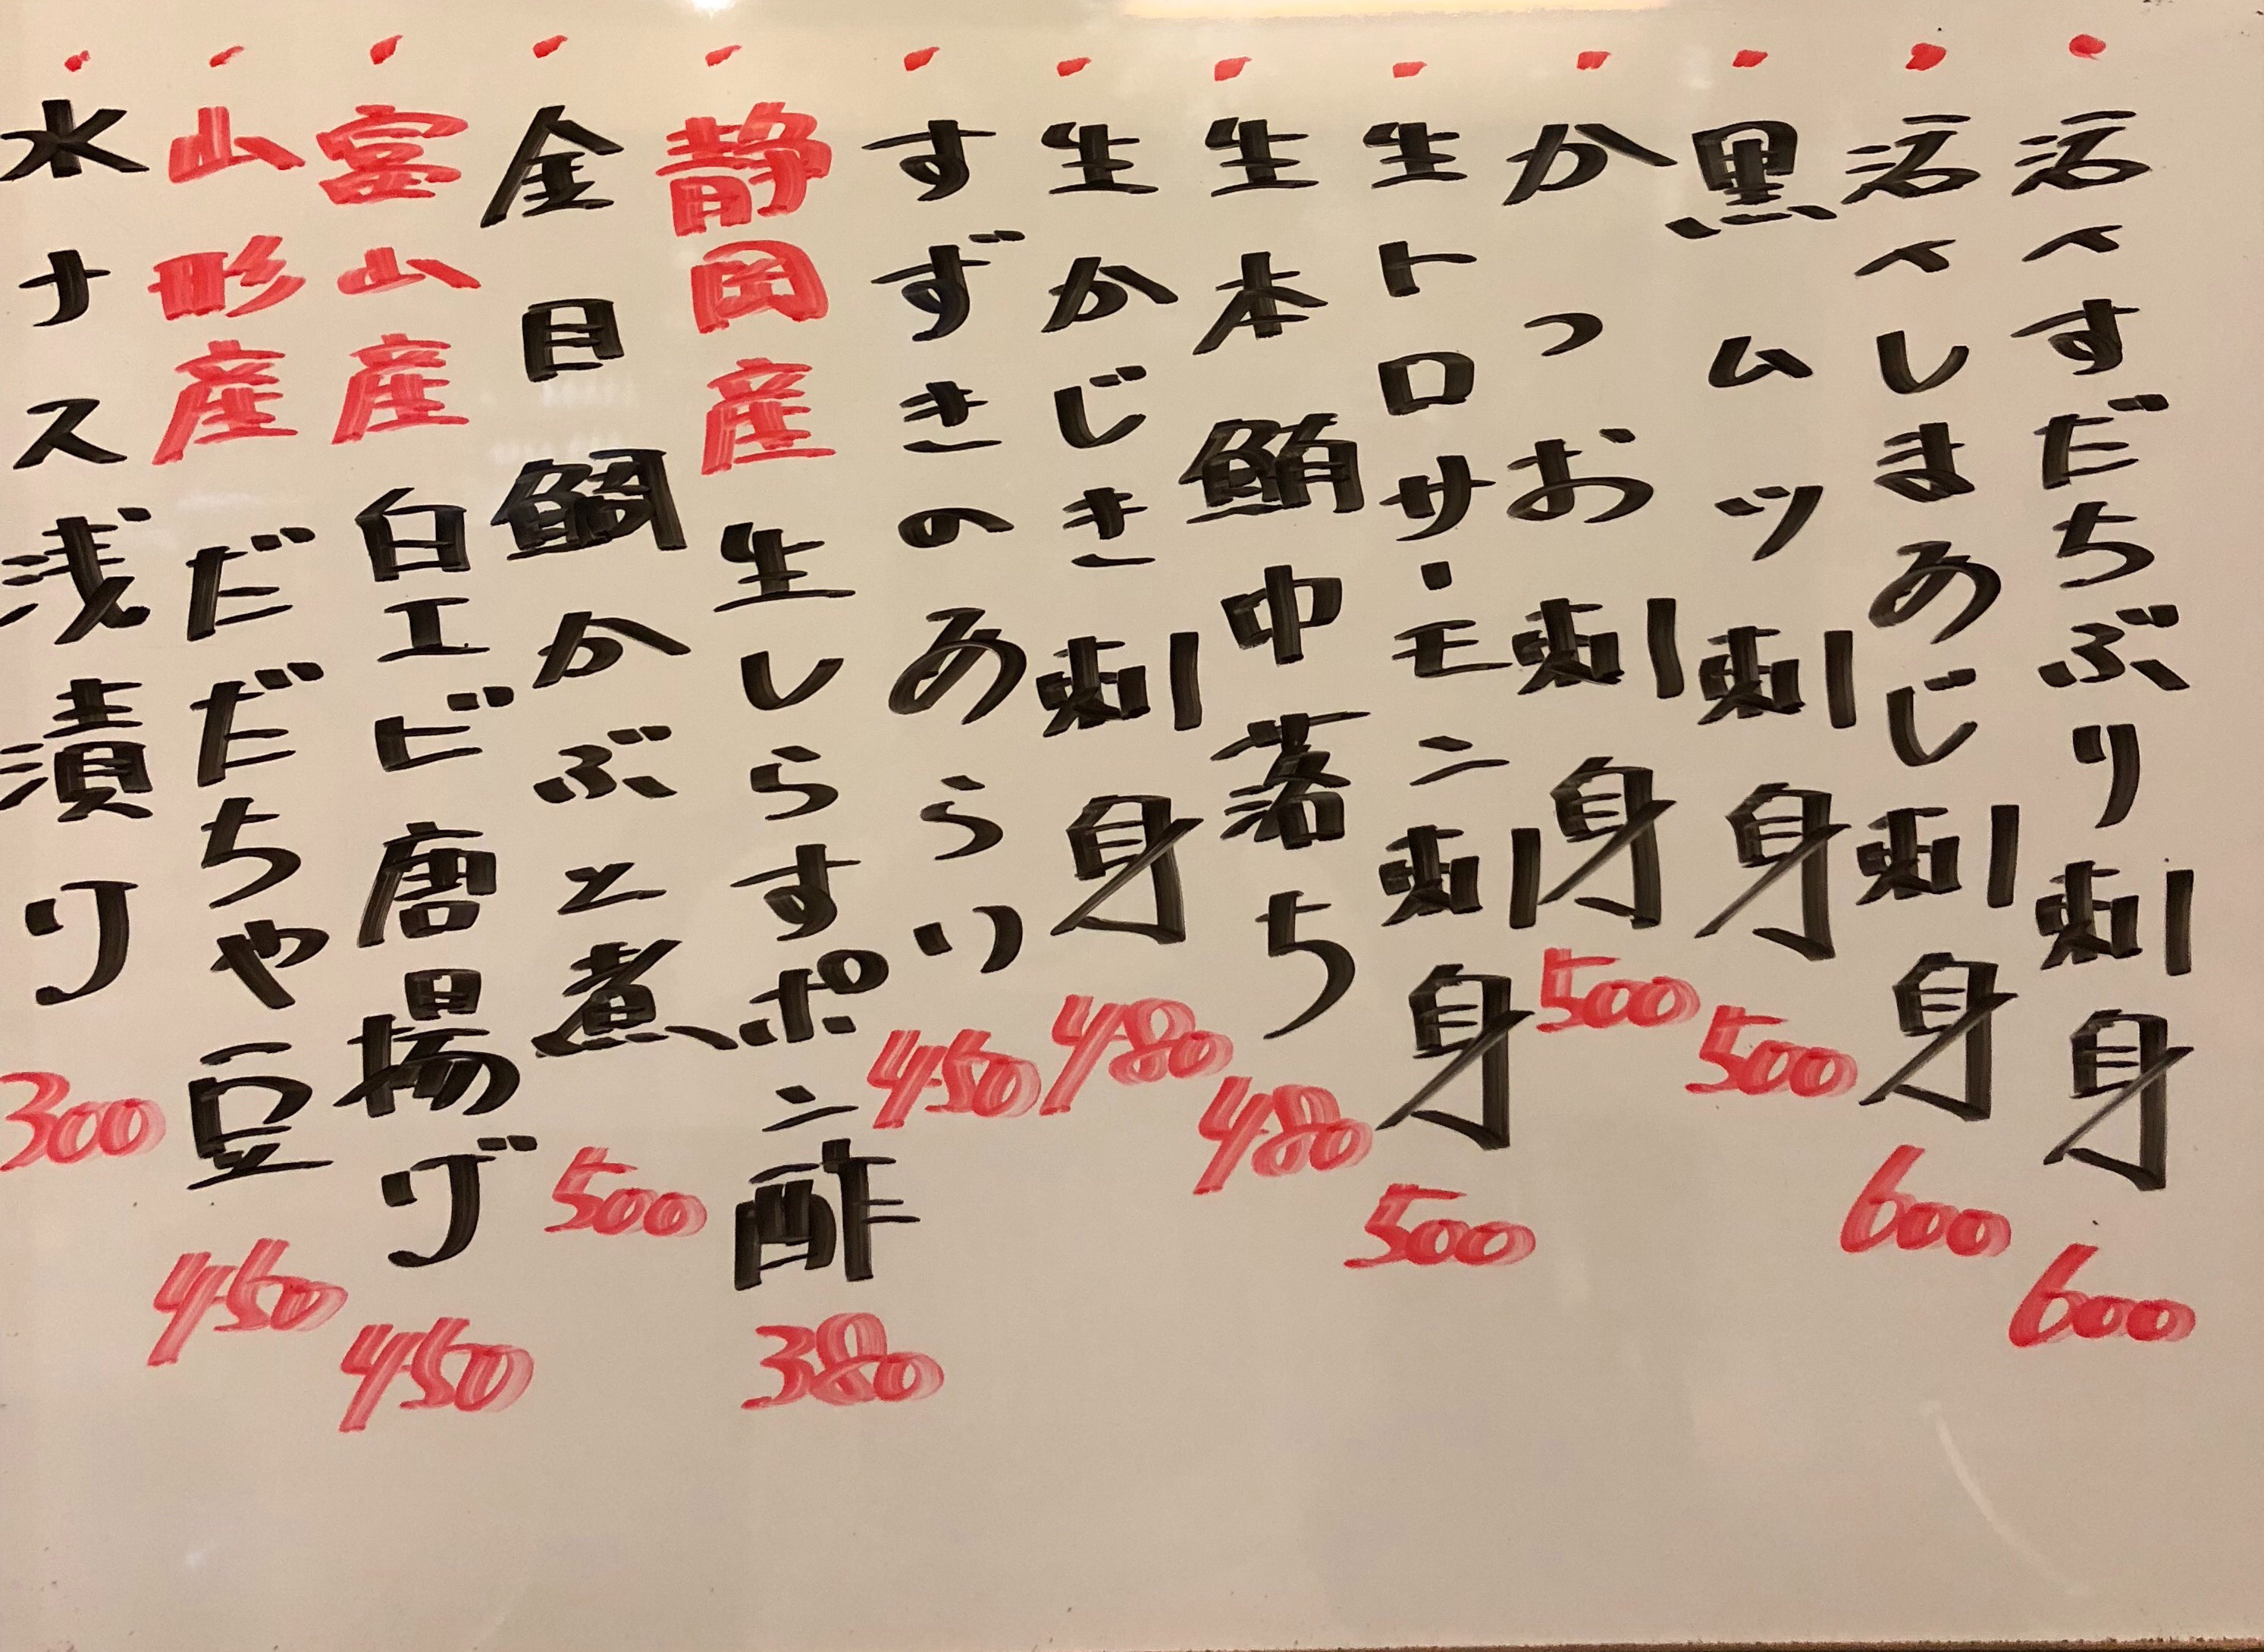 ・活〆すだちぶり刺身 600
・活〆しまあじ刺身 600
・黒ムツ刺身 500
・かつお刺身 500
・生トロサーモン刺身 500
・生本鮪中落ち 480
・生かじき刺身 480
・すずきのあらい 450
・静岡産生しらすポン酢 380
・金目鯛かぶと煮 500
・富山産白エビ唐揚げ 450
・山形産だだちゃ豆 450
・水ナス浅漬け 300